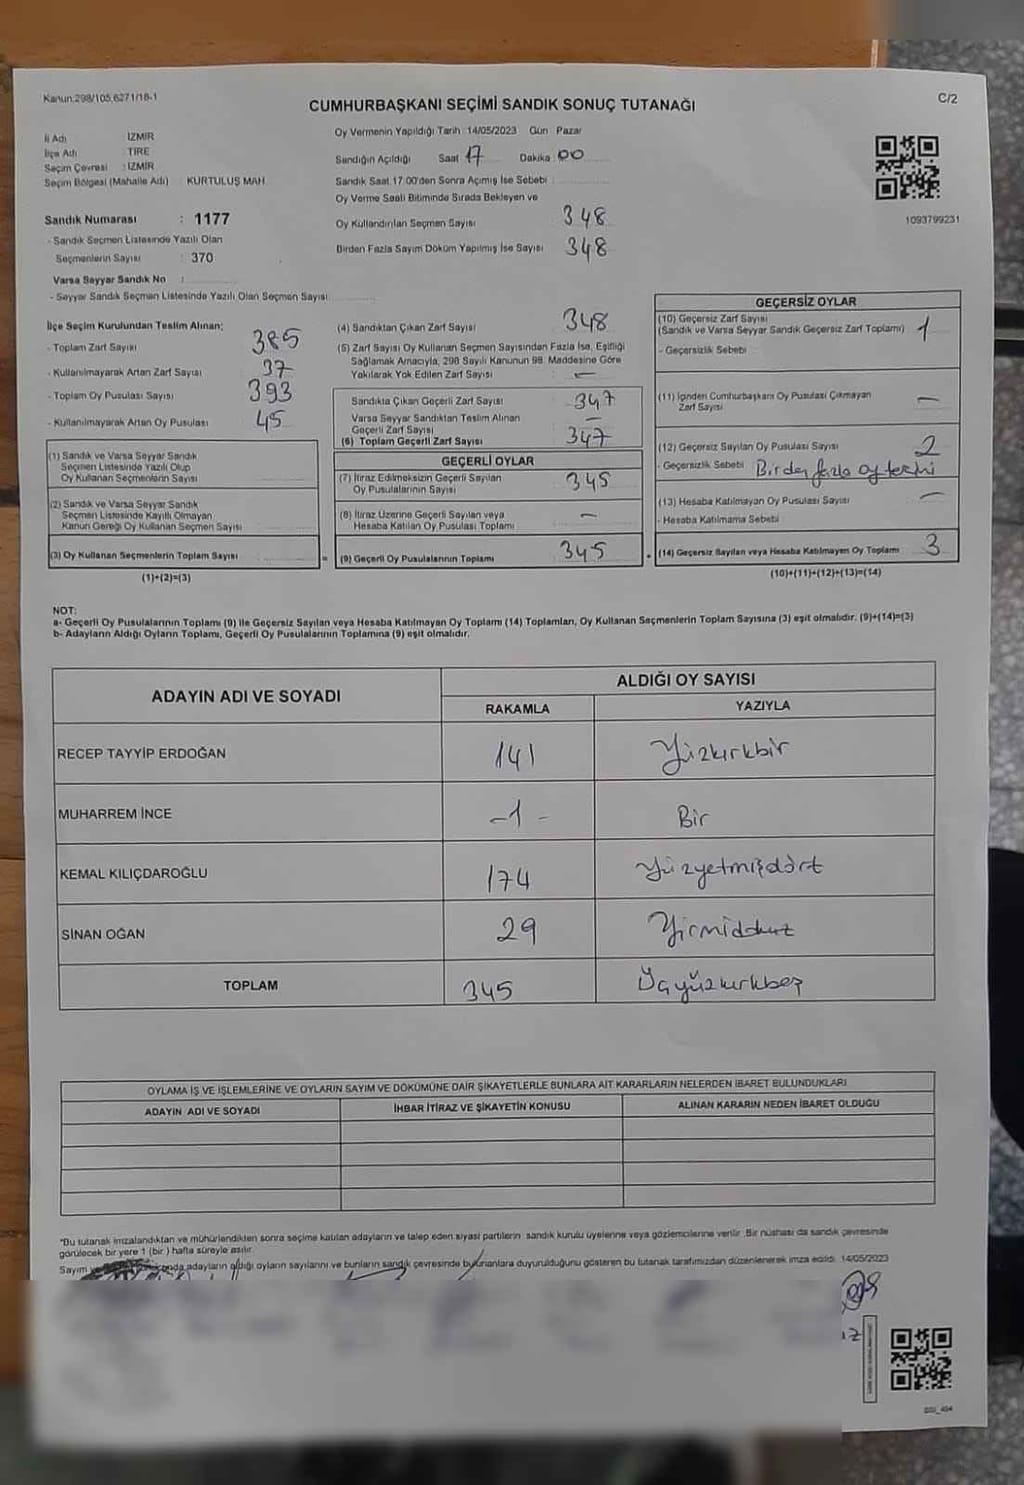 Kanun:298/105,6271/18-1
C/2
CUMHURBAŞKANI SEÇİMİ SANDIK SONUÇ TUTANAĞI
İl Adı : İZMİR
İlçe Adı : TİRE
Seçim Çevresi : İZMİR
Seçim Bölgesi (Mahalle Adı) : KURTULUŞ MAH.
Sandık Numarası : 1177
- Sandık Seçmen Listesinde Yazılı Olan
Seçmenlerin Sayısı : 370
Varsa Seyyar Sandık No :
- Seyyar Sandık Seçmen Listesinde Yazılı Olan Seçmen Sayısı:
Oy Vermenin Yapıldığı Tarih :14/05/2023 Gün Pazar
Sandığın Açıldığı Saat 17 Dakika 00
Sandık Saat 17:00'den Sonra Açılmış İse Sebebi :
Oy Verme Saati Bitiminde Sırada Bekleyen ve
Oy Kullandırılan Seçmen Sayısı 348
Birden Fazla Sayım Döküm Yapılmış İse Sayısı 348
1093799231
İlçe Seçim Kurulundan Teslim Alınan;
- Toplam Zarf Sayısı 385
- Kullanılmayarak Artan Zarf Sayısı 37
- Toplam Oy Pusulası Sayısı 393
- Kullanılmayarak Artan Oy Pusulası 45
(1) Sandık ve Varsa Seyyar Sandık
Seçmen Listesinde Yazılı Olup
Oy Kullanan Seçmenlerin Sayısı
(2) Sandık ve Varsa Seyyar Sandık
Seçmen Listesinde Kayıtlı Olmayan
Kanun Gereği Oy Kullanan Seçmen Sayısı
(3) Oy Kullanan Seçmenlerin Toplam Sayısı
(1)+(2)=(3)
(4) Sandıktan Çıkan Zarf Sayısı 348
(5) Zarf Sayısı Oy Kullanan Seçmen Sayısından Fazla İse, Eşitliği
Sağlamak Amacıyla, 298 Sayılı Kanunun 98. Maddesine Göre
Yakılarak Yok Edilen Zarf Sayısı : -
Sandıkta Çıkan Geçerli Zarf Sayısı : 347
Varsa Seyyar Sandıktan Teslim Alınan
Geçerli Zarf Sayısı -
(6) Toplam Geçerli Zarf Sayısı 347
GEÇERLİ OYLAR
(7) İtiraz Edilmeksizin Geçerli Sayılan
Oy Pusulalarının Sayısı 345
(8) İtiraz Üzerine Geçerli Sayılan veya
Hesaba Katılan Oy Pusulası Toplamı -
=
(9) Geçerli Oy Pusulalarının Toplamı 345
+
GEÇERSİZ OYLAR
(10) Geçersiz Zarf Sayısı
(Sandık ve Varsa Seyyar Sandık Geçersiz Zarf Toplamı) 1
- Geçersizlik Sebebi :
(11) İçinden Cumhurbaşkanı Oy Pusulası Çıkmayan
Zarf Sayısı -
(12) Geçersiz Sayılan Oy Pusulası Sayısı 2
- Geçersizlik Sebebi : Birden fazla oy tercihi
(13) Hesaba Katılmayan Oy Pusulası Sayısı -
- Hesaba Katılmama Sebebi
(14) Geçersiz Sayılan veya Hesaba Katılmayan Oy Toplamı 3
(10)+(11)+(12)+(13)=(14)
NOT:
a- Geçerli Oy Pusulalarının Toplamı (9) ile Geçersiz Sayılan veya Hesaba Katılmayan Oy Toplamı (14) Toplamları, Oy Kullanan Seçmenlerin Toplam Sayısına (3) eşit olmalıdır. (9)+(14)=(3)
b- Adayların Aldığı Oyların Toplamı, Geçerli Oy Pusulalarının Toplamına (9) eşit olmalıdır.
ADAYIN ADI VE SOYADI
ALDIĞI OY SAYISI
RAKAMLA YAZIYLA
RECEP TAYYİP ERDOĞAN 141 Yüzkırkbir
MUHARREM İNCE -1- Bir
KEMAL KILIÇDAROĞLU 174 Yüzyetmişdört
SİNAN OĞAN 29 Yirmidokuz
TOPLAM 345 Üçyüzkırkbeş
OYLAMA İŞ VE İŞLEMLERİNE VE OYLARIN SAYIM VE DÖKÜMÜNE DAİR ŞİKAYETLERLE BUNLARA AİT KARARLARIN NELERDEN İBARET BULUNDUKLARI
ADAYIN ADI VE SOYADI İHBAR İTİRAZ VE ŞİKAYETİN KONUSU ALINAN KARARIN NEDEN İBARET OLDUĞU
"Bu tutanak imzalandıktan ve mühürlendikten sonra seçime katılan adayların ve talep eden siyasi partilerin sandık kurulu üyelerine veya gözlemcilerine verilir. Bir nüshası da sandık çevresinde
görülecek bir yere 1 (bir) hafta süreyle asılır.
Sayım adayların aldığı oyların sayılarını ve bunların sandık çevresinde bulunanlara duyurulduğunu gösteren bu tutanak tarafımızdan düzenlenerek imza edildi. 14/05/2023